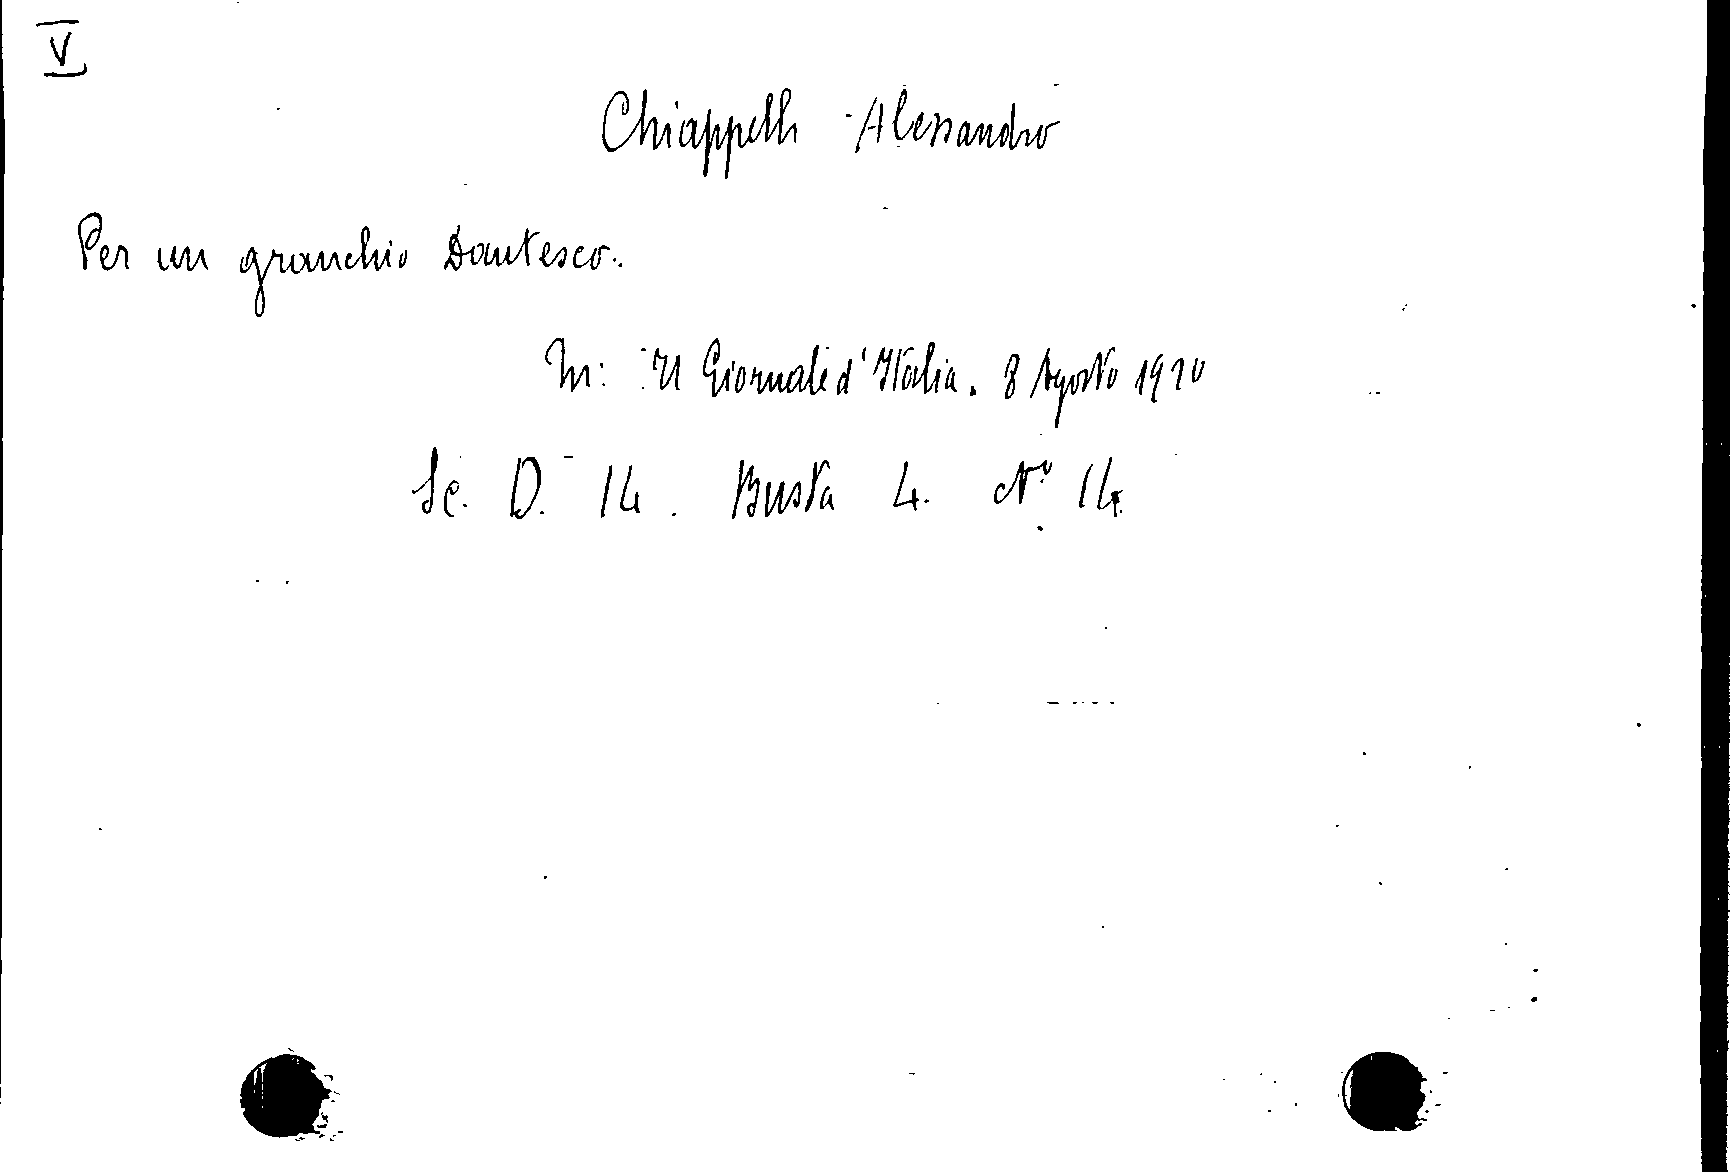 V
Chiappelli Alessandro
Per un granchio Dantesco.
In: Il Giornale d'Italia. 8 Agosto 1920
Sc. D. 14. Busta 4. N° 14.